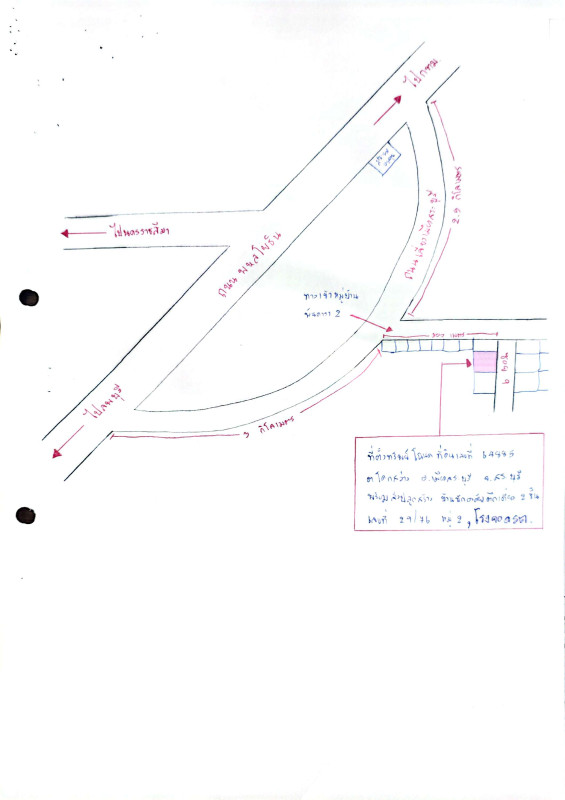 ไปกทม
ไปนครราชสีมา
ถนน พหลโยธิน
ถนนเลี่ยงเมืองสระบุรี
2.9 กิโลเมตร
ทางเข้าหมู่บ้าน
2
300 เมตร
ซอย 9
ไปลพบุรี
3 กิโลเมตร
ที่ตั้งทรัพย์ โฉนด ที่ดินเลขที่
ต.โคกสว่าง อ.เมืองสระบุรี จ.สระบุรี
พร้อมสิ่งปลูกสร้าง บ้านพักอาศัยตึกเดี่ยว 2 ชั้น
เลขที่ 29/76 หมู่ 2, โรงจอดรถ.